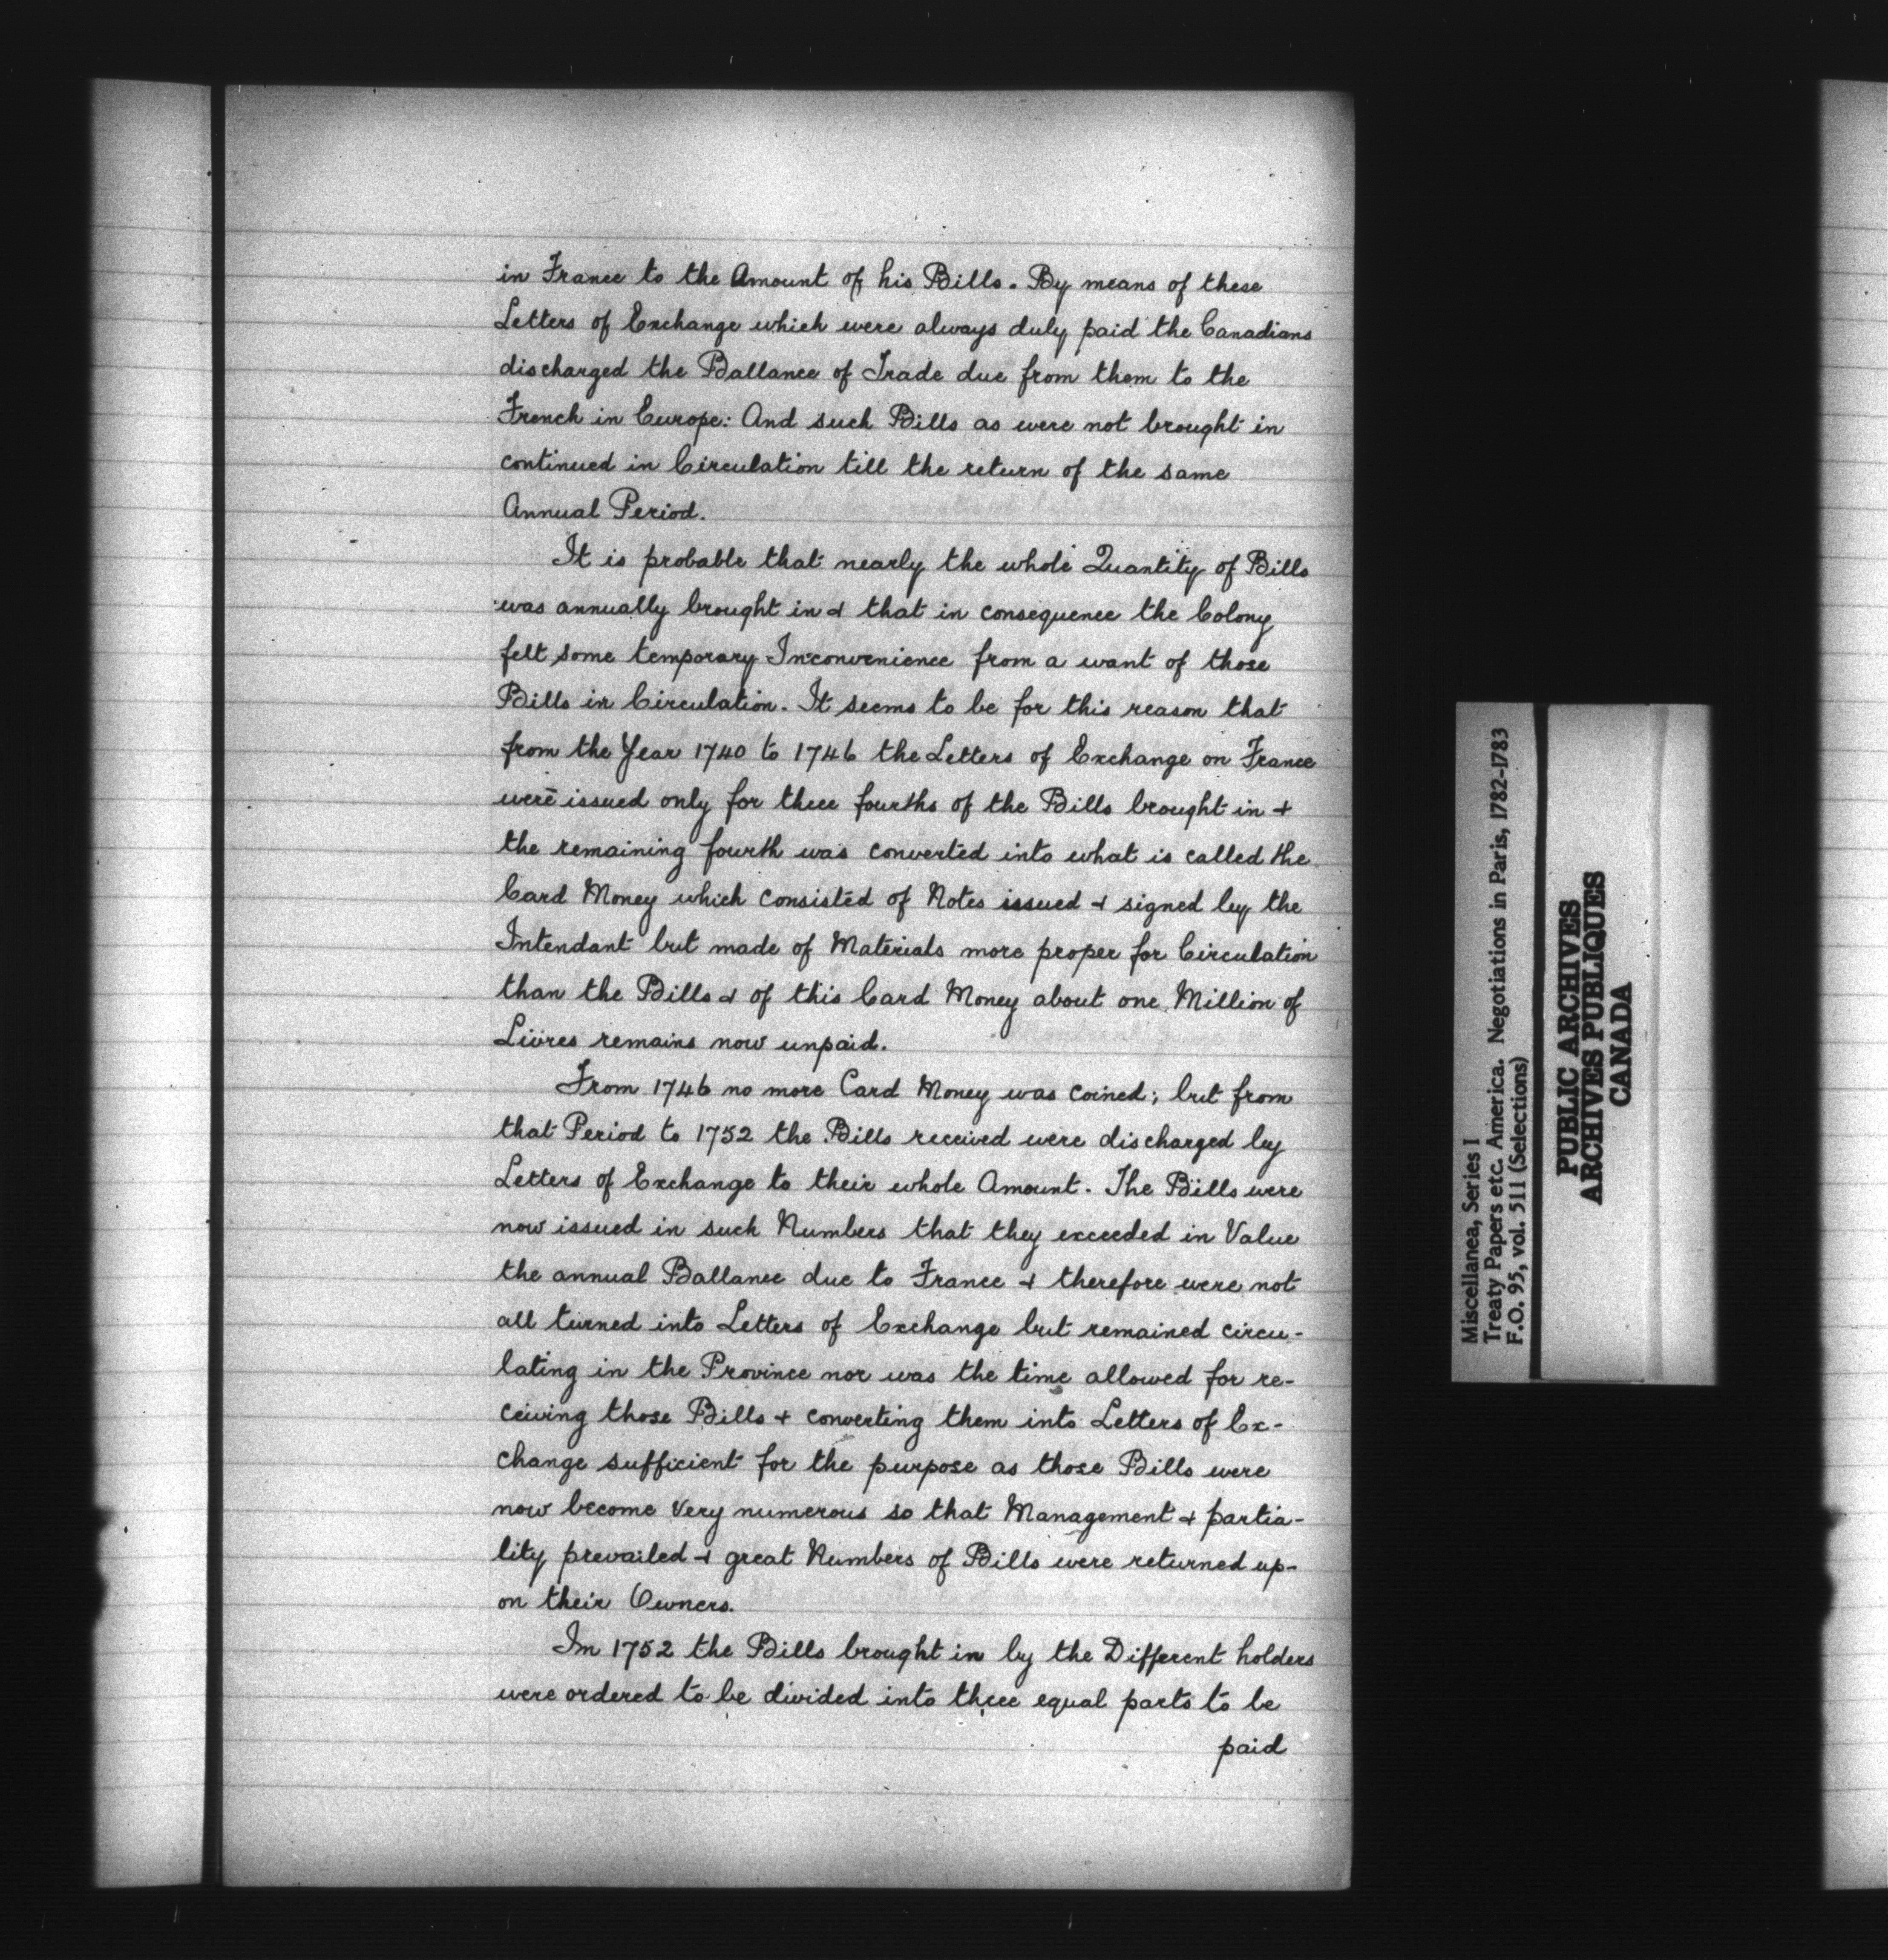 in France to the Amount of his Bills. By means of these
Letters of Exchange which were always duly paid the Canadians
discharged the Ballance of Trade due from them to the
French in Europe: And such Bills as were not brought in
continued in Circulation till the return of the same
Annual Period.
It is probable that nearly the whole Quantity of Bills
was annually brought in & that in consequence the Colony
felt some temporary Inconvenience from a want of those
Bills in Circulation. It seems to be for this reason that
from the Year 1740 to 1746 the Letters of Exchange on France
were issued only for three fourths of the Bills brought in &
the remaining fourth was converted into what is called the
Card Money which consisted of Notes issued & signed by the
Intendant but made of Materials more proper for Circulation
than the Bills & of this Card Money about one Million of
Livres remains now unpaid.
From 1746 no more Card Money was coined; but from
that Period to 1752 the Bills received were discharged by
Letters of Exchange to their whole Amount. The Bills were
now issued in such Numbers that they exceeded in Value
the annual Ballance due to France & therefore were not
all turned into Letters of Exchange but remained circu-
lating in the Province nor was the time allowed for re-
ceiving those Bills & converting them into Letters of Ex-
change sufficient for the purpose as those Bills were
now become very numerous so that Management & partia-
lity prevailed & great Numbers of Bills were returned up-
on their Owners.
In 1752 the Bills brought in by the Different holders
were ordered to be divided into three equal parts to be
paid
Miscellanea, Series I
Treaty Papers etc. America. Negotiations in Paris, 1782-1783
F.O. 95, vol. 511 (Selections)
PUBLIC ARCHIVES
ARCHIVES PUBLIQUES
CANADA